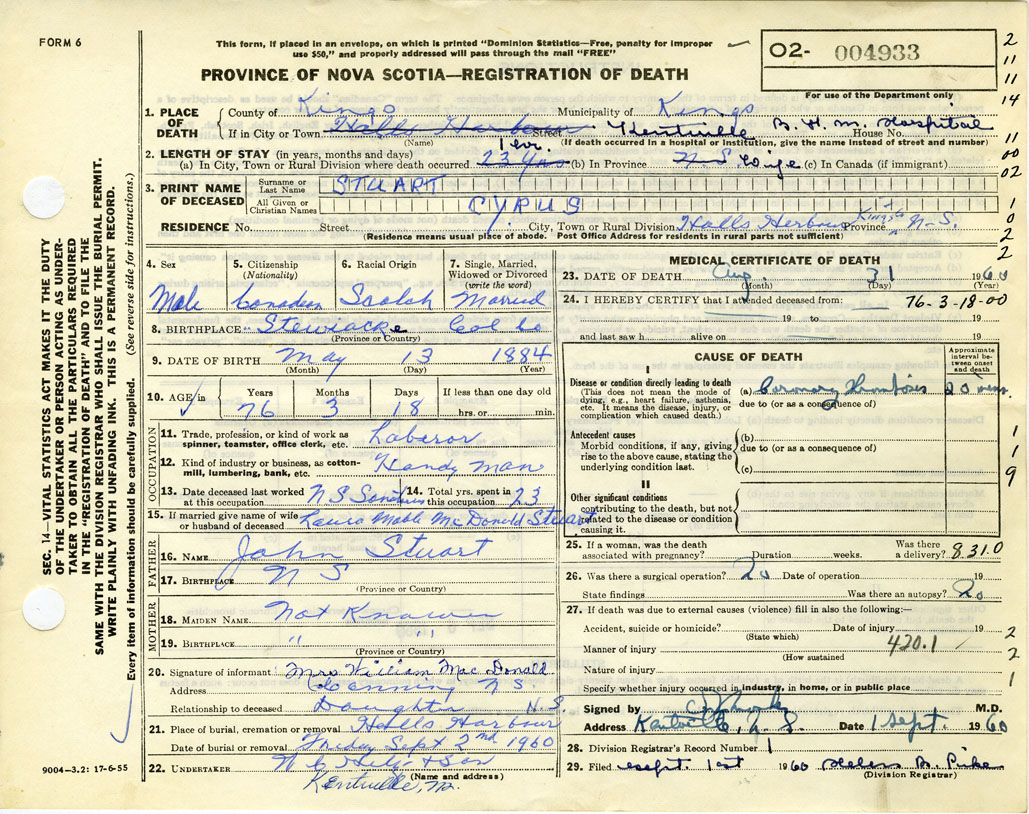 FORM 6
This form, if placed in an envelope, on which is printed "Dominion Statistics—Free, penalty for improper
use $50," and properly addressed will pass through the mail "FREE"
O2- 004933
For use of the Department only
PROVINCE OF NOVA SCOTIA—REGISTRATION OF DEATH
2
11
11
14
11
00
02
1
0
2
2
1. PLACE OF DEATH
County of Kings Municipality of Kings
If in City or Town Halls Harbour Street Kentville B. F. M. Hospital House No.
(Name) (If death occurred in a hospital or institution, give the name instead of street and number)
2. LENGTH OF STAY (in years, months and days)
(a) In City, Town or Rural Division where death occurred. 23 Yrs 1 hr. (b) In Province N S Life (c) In Canada (if immigrant)
3. PRINT NAME OF DECEASED
Surname or Last Name STUART
All Given or Christian Names CYRUS
RESIDENCE No. Street City, Town or Rural Division Halls Harbour Kings Co Province N-S.
(Residence means usual place of abode. Post Office Address for residents in rural parts not sufficient)
4. Sex Male
5. Citizenship (Nationality) Canadian
6. Racial Origin Scotch
7. Single, Married, Widowed or Divorced (write the word) Married
8. BIRTHPLACE Stewiacke Col Co
(Province or Country)
9. DATE OF BIRTH May 13 1884
(Month) (Day) (Year)
10. AGE in Years 76 Months 3 Days 18 If less than one day old hrs. or min.
OCCUPATION
11. Trade, profession, or kind of work as spinner, teamster, office clerk, etc. Laboror
12. Kind of industry or business, as cotton-mill, lumbering, bank, etc. Handy Man
13. Date deceased last worked at this occupation N S
14. Total yrs. spent in this occupation 23
15. If married give name of wife or husband of deceased Laura Mable McDonald Stewart
FATHER
16. NAME John Stuart
17. BIRTHPLACE N S
(Province or Country)
MOTHER
18. MAIDEN NAME Not Known
19. BIRTHPLACE " "
(Province or Country)
20. Signature of informant Mrs William MacDonald
Address Canning N S.
Relationship to deceased Daughter N.S.
21. Place of burial, cremation or removal Halls Harbour
Date of burial or removal Friday Sept 2nd 1960
22. UNDERTAKER & Son
(Name and address)
Kentville, N.S.
MEDICAL CERTIFICATE OF DEATH
23. DATE OF DEATH Aug. 31 1960
(Month) (Day) (Year)
24. I HEREBY CERTIFY that I attended deceased from: 76-3-18-00
19 to 19
and last saw h alive on 19
CAUSE OF DEATH
Approximate interval between onset and death
I
Disease or condition directly leading to death
(This does not mean the mode of dying, e.g., heart failure, asthenia, etc. It means the disease, injury, or complication which caused death.)
(a) Coronary Thrombosis 20 mins.
due to (or as a consequence of)
Antecedent causes
Morbid conditions, if any, giving rise to the above cause, stating the underlying condition last.
(b)
due to (or as a consequence of)
(c)
II
Other significant conditions
contributing to the death, but not related to the disease or condition causing it.
1
1
9
25. If a woman, was the death associated with pregnancy? Duration weeks. Was there a delivery? 8310
26. Was there a surgical operation? No Date of operation 19
State findings Was there an autopsy? No
27. If death was due to external causes (violence) fill in also the following:—
Accident, suicide or homicide? Date of injury 19
(State which)
Manner of injury 420.1
(How sustained)
Nature of injury
Specify whether injury occurred in industry, in home, or in public place
2
2
1
Signed by M.D.
Address Kentville, N. S. Date 1 Sept. 1960
28. Division Registrar's Record Number 1
29. Filed Sept. 1st 1960 Helen B. Pike
(Division Registrar)
SEC. 14—VITAL STATISTICS ACT MAKES IT THE DUTY
OF THE UNDERTAKER OR PERSON ACTING AS UNDER-
TAKER TO OBTAIN ALL THE PARTICULARS REQUIRED
IN THE "REGISTRATION OF DEATH" AND TO FILE THE
SAME WITH THE DIVISION REGISTRAR WHO SHALL ISSUE THE BURIAL PERMIT.
WRITE PLAINLY WITH UNFADING INK. THIS IS A PERMANENT RECORD.
Every item of information should be carefully supplied. (See reverse side for instructions.)
9004—3.2: 17-6-55